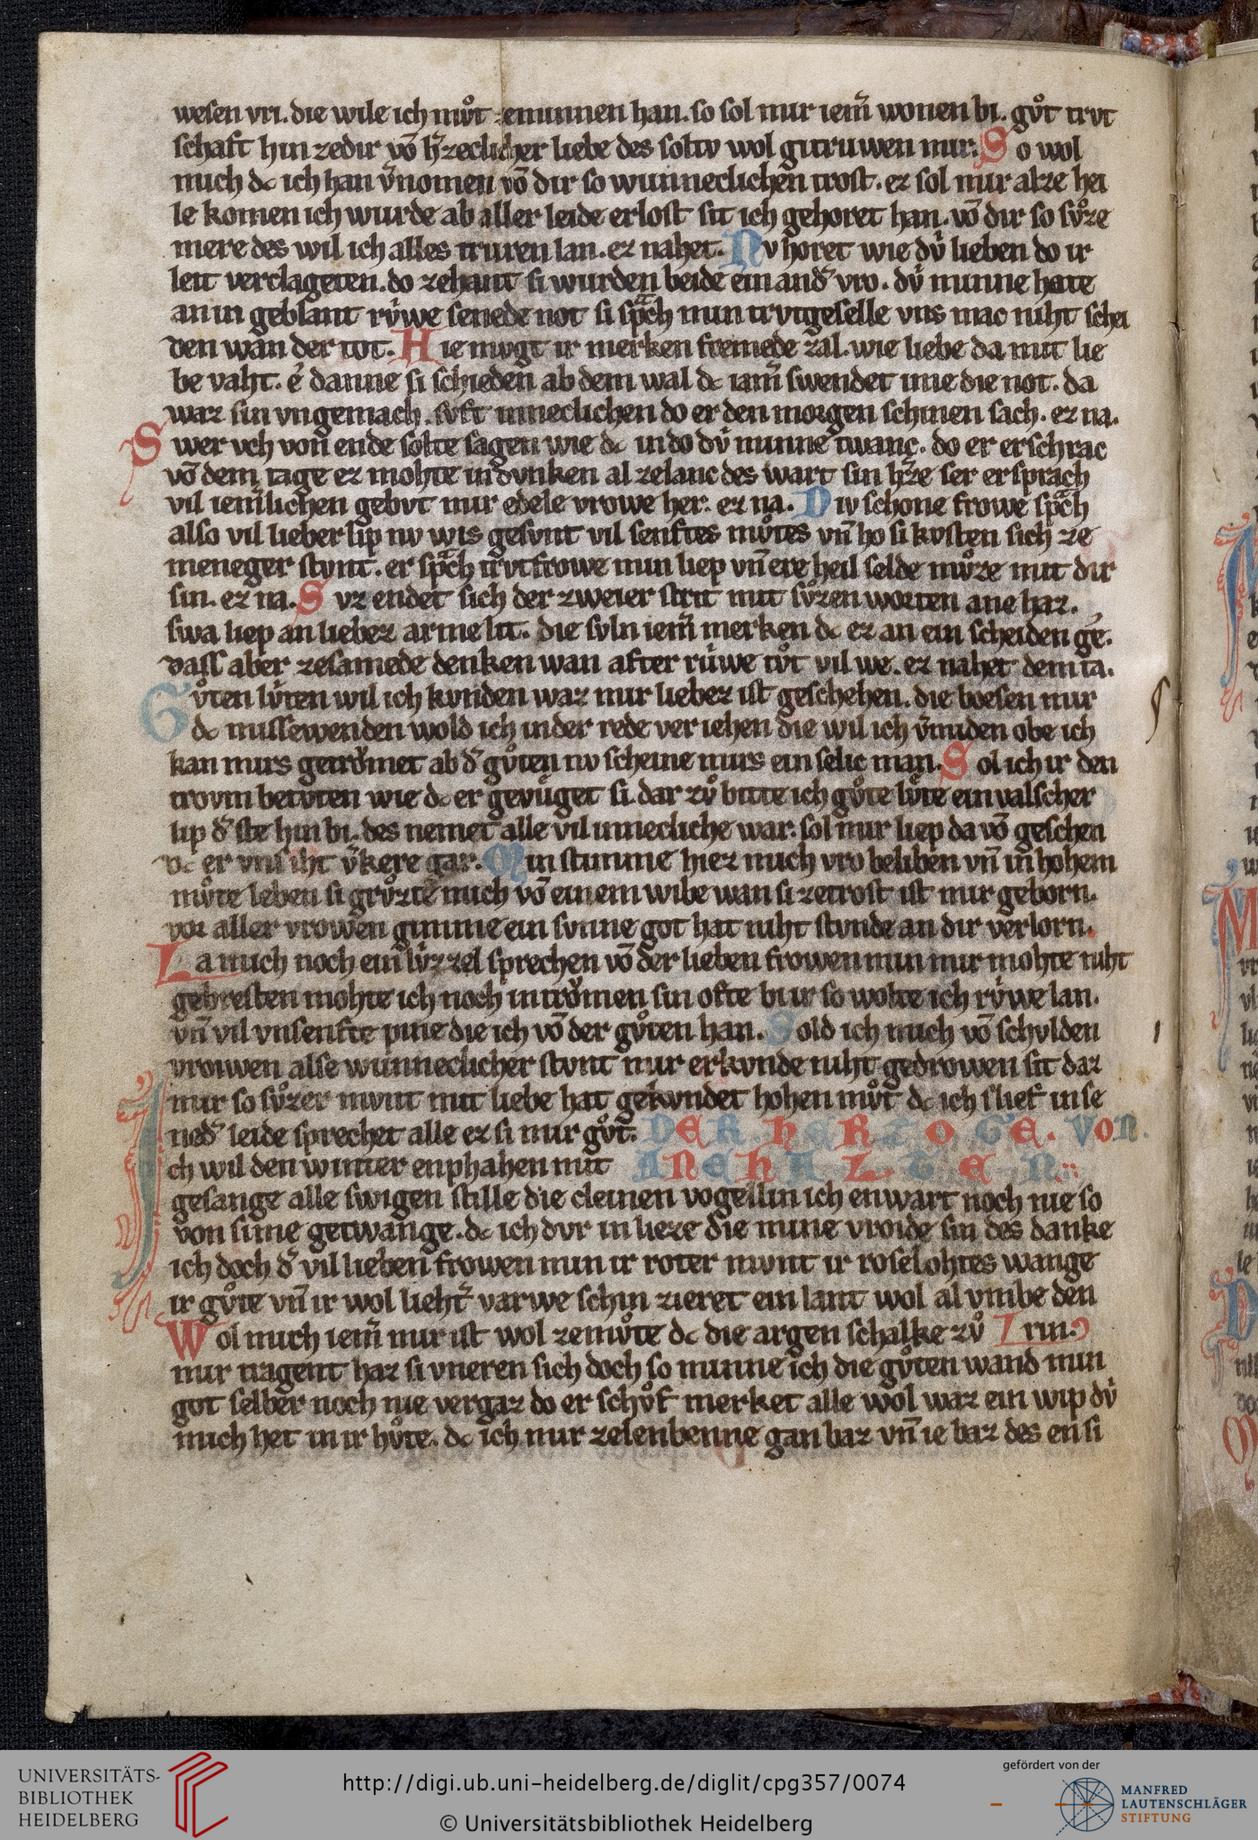 wesen vri. die wile ich mv̊t zeminnen han. so sol mir iem̄ wonen bi. gv̊t trvt
schaft hin zedir vō h̄zeclicher liebe des soltv wol gitruwen mir. So wol
mich dc ich han v̄nomen vō dir so wunneclichen trost. ez sol mir alze hei
le komen ich wurde ab aller leide erlost sit ich gehoret han. vō dir so sv̊ze
mere des wil ich alles truren lan. ez nahet. Nv horet wie dv̍ lieben do ir
leit verclageten. do zehant si wurden beide ein and̄ vro. dv̍ minne hate
an in gesant rv̍we senede not si spͣch min trvtgeselle vns mac niht schei
den wan der tot. Hie mvgt ir merken fremede zal. wie liebe da mit lie
be vaht. e̍ danne si schieden ab dem wal dc iam̄ swendet ime die not. da
waz sin vngemach. svft inneclichen do er den morgen schinen sach. ez na.
Swer vch von ende solte sagen wie dc in do dv̍ minne twanc. do er erschrac
vō dem tage ez mohte in dvnken al zelanc des wart sin h̄ze ser er sprach
vil iem̄lichen gebvt mir edele vrowe her. ez na. Div schone frowe spͣch
also vil lieber lip nv wis gesvnt vil senftes mv̊tes vn̄ ho si kvsten sich ze
meneger stvnt. er spͣch trvtfrowe min liep vn̄ ere heil selde mv̊ze mit dir
sin. ez na. Svz endet sich der zweier strit mit sv̊zen worten ane haz.
swa liep an liebez arme lit. die svln iem̄ merken dc ez an ein scheiden ge̍.
dass aber zesamede denken wan after rúwe tv̊t vil we. ez nahet dem ta.
Gv̊ten lv̍ten wil ich kvnden waz mir liebez ist geschehen. die boesen mir
dc missewenden wold ich in der rede ver iehen die wil ich v̄miden obe ich
kan mirs getrv̊met ab d̄ gv̊ten nv scheine mirs ein selic man. Sol ich ir den
trovm betvten wie dc er gevüget si. dar zv̊ bitte ich gv̊te lv̍te ein valscher
lip d̄ ste hin bi. des nemet alle vil innecliche war. sol mir liep da vō geschen
dc er vns iht v̄kere gar. Min stimme hiez mich vro beliben vn̄ in hohem
mv̊te leben si grv̊zte mich vō einem wibe wan si zetrost ist mir geborn.
vor aller vrowen gimme ein svnne got hat niht stvnde an dir verlorn.
La mich noch ein lv̍zzel sprechen vō der lieben frowen min mir mohte niht
gebresten mohte ich noch in trv̊men sin ofte bi ir so wolte ich rv̍we lan.
vn̄ vil vnsenfte pine die ich vō der gv̊ten han. Sold ich mich vō schvlden
vrowen alse wunneclicher stvnt mir erkvnde niht gedrowen sit daz
mir so sv̊zer mvnt mit liebe hat gekvndet hohen mv̊t dc ich slief in se
ned̄ leide sprechet alle ez si mir gv̊t. DER HERTOGE. VON.
Ich wil den winter enphahen mit ANEHALTEN
gesange alle swigen stille die cleinen vogellin ich enwart noch nie so
von sime getwange. dc ich dvr in lieze die mine vroide sin des danke
ich doch d̄ vil lieben frowen min ir roter mvnt ir roselohtes wange
ir gv̊te vn̄ ir wol lieht̄ varwe schin zieret ein lant wol al vmbe den
Wol mich iem̄ mir ist wol zemv̊te dc die argen schalke zv̊ rin.
mir tragent haz si vneren sich doch so minne ich die gv̊ten wand min
got selber noch nie vergaz do er schv̊f merket alle wol waz ein wip dv̍
mich het in ir hv̊te. dc ich mir zelenbenne gan baz vn̄ ie baz des en si
UNIVERSITÄTS-
BIBLIOTHEK
HEIDELBERG
http://digi.ub.uni-heidelberg.de/diglit/cpg357/0074
© Universitätsbibliothek Heidelberg
gefördert von der
MANFRED
LAUTENSCHLÄGER
STIFTUNG